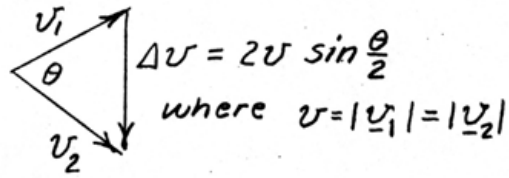 v₁
θ
Δv = 2v sin θ/2
where v = |v̲₁| = |v̲₂|
v₂